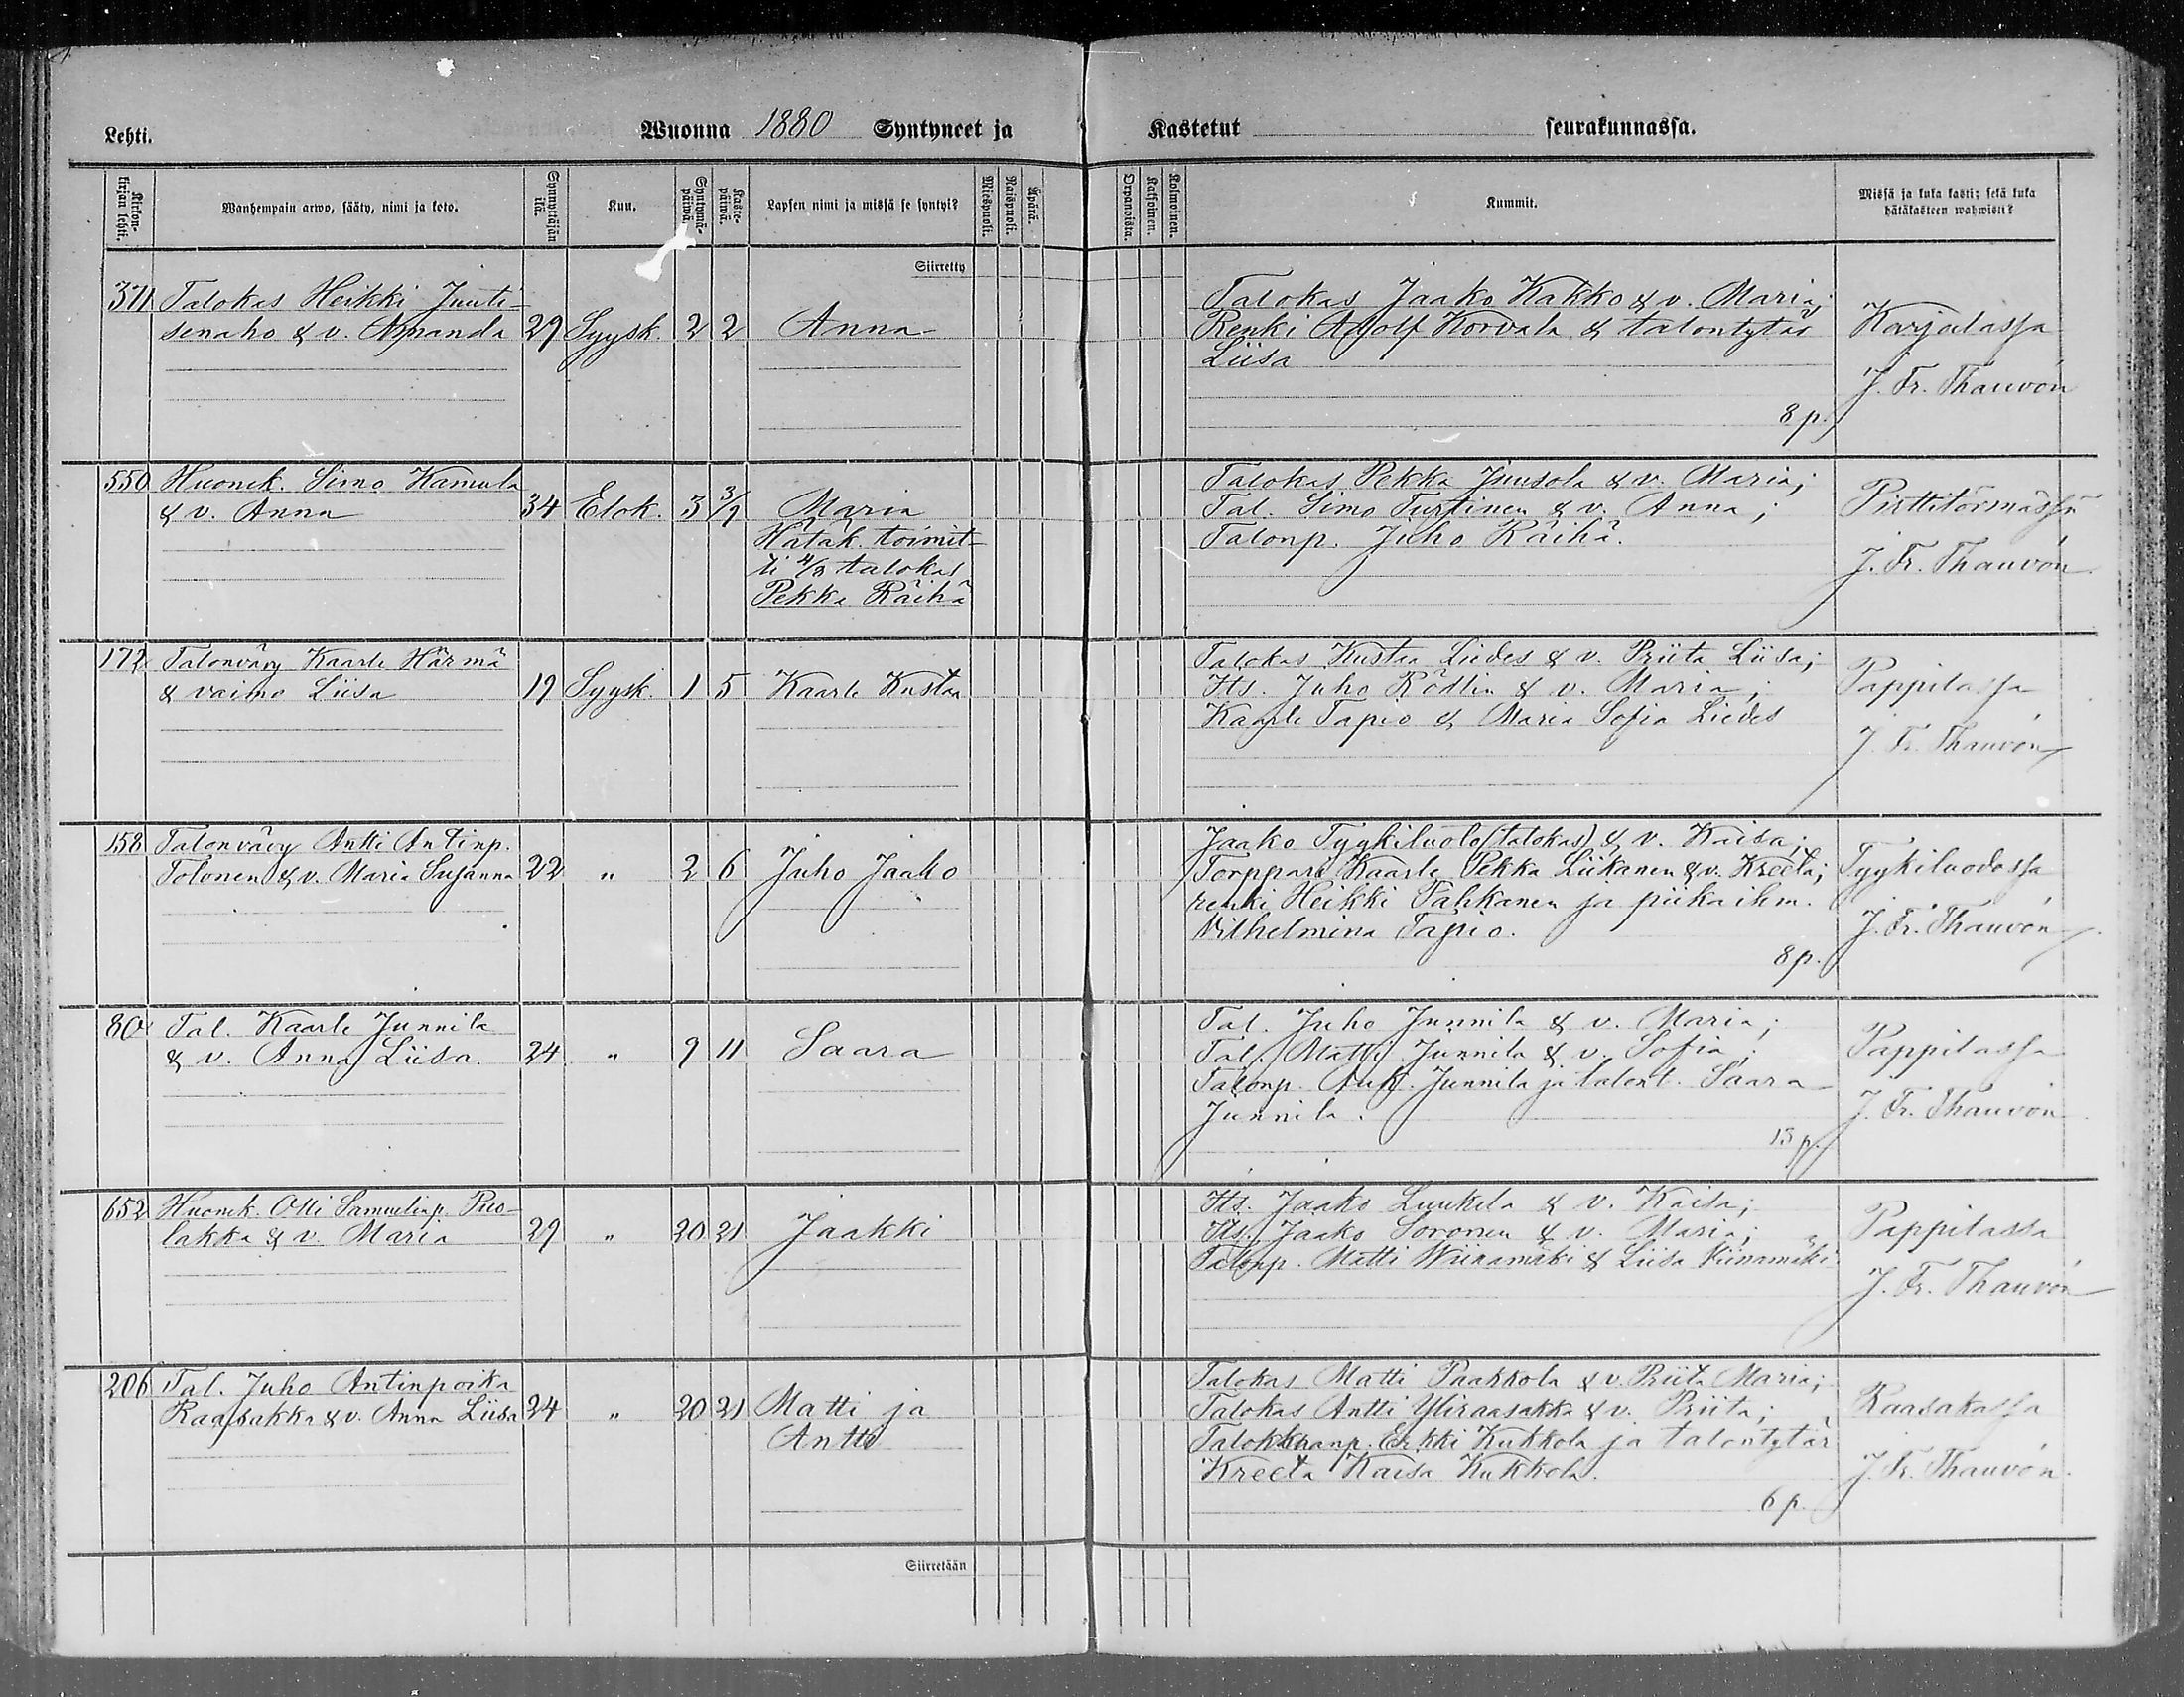 Lehti. Wuonna 1880 Syntyneet ja Kastetut seurakunnassa.
Kirkonkirjan lehti. Wanhempain arwo, sääty, nimi ja koto. Synnyttäjän ikä. Kuu. Syntymäpäiwä. Kastepäiwä. Lapsen nimi ja missä se syntyi? Miespuoli. Naispuoli. Äpärä. Orpanoista. Kaksoinen. Kolmoinen. Kummit. Missä ja kuka kasti; sekä kuka hätäkasteen wahwisti?
Siirretty
371 Talokas Heikki Juuti-
senaho & v. Amanda 29 Syysk. 2 2 Anna
Talokas Jaako Kakko & v. Maria;
Renki Adolf Korvala & talontytär
Liisa
8 p.
Karjalassa
J. Fr. Thauvón
550 Huonek. Simo Kamula
& v. Anna 34 Elok. 3 3/9 Maria
Hätäk. toimit-
ti 4/8 talokas
Pekka Räihä
Talokas Pekka Juusola & v. Maria;
Tal. Simo Turtinen & v. Anna;
Talonp. Juho Räihä.
Pirttitörmässä
J. Fr. Thauvón
172 Talonvävy Kaarle Härmä
& vaimo Liisa 19 Syysk. 1 5 Kaarle Kustaa
Talokas Kustaa Liedes & v. Priita Liisa;
Its. Juho Rödlin & v. Maria;
Kaarle Tapio & Maria Sofia Liedes
Pappilassa
J. Fr. Thauvón
158 Talonvävy Antti Antinp.
Tolonen & v. Maria Susanna 22 " 2 6 Juho Jaako
Jaako Tyykiluoto (talokas) & v. Kaisa;
Torppari Kaarle Pekka Liikanen & v. Kreeta;
renki Heikki Tahkanen ja piikaihm.
Vilhelmina Tapio.
8 p.
Tyykiluodossa
J. Fr. Thauvón
80 Tal. Kaarle Junnila
& v. Anna Liisa. 24 " 9 11 Saara
Tal. Juho Junnila & v. Maria;
Tal. Matti Junnila & v. Sofia;
Talonp. Antt. Junnila ja talont. Saara
Junnila.
15 p.
Pappilassa
J. Fr. Thauvón
652 Huonek. Olli Samuelinp. Puo-
lakka & v. Maria 29 " 20 21 Jaakki
Its. Jaako Luukela & v. Kaisa;
Its. Jaako Soronen & v. Maria;
Talonp. Matti Wiinamäki & Liisa Viinamäki
Pappilassa
J. Fr. Thauvón
206 Tal. Juho Antinpoika
Raasakka & v. Anna Liisa 24 " 20 21 Matti ja
Antti
Talokas Matti Paakkola & v. Priita Maria;
Talokas Antti Yliraasakka & v. Priita;
Erkki Kukkola ja talontytär
Kreeta Kaisa Kukkola.
6 p.
Raasakassa
J. Fr. Thauvón
Siirretään